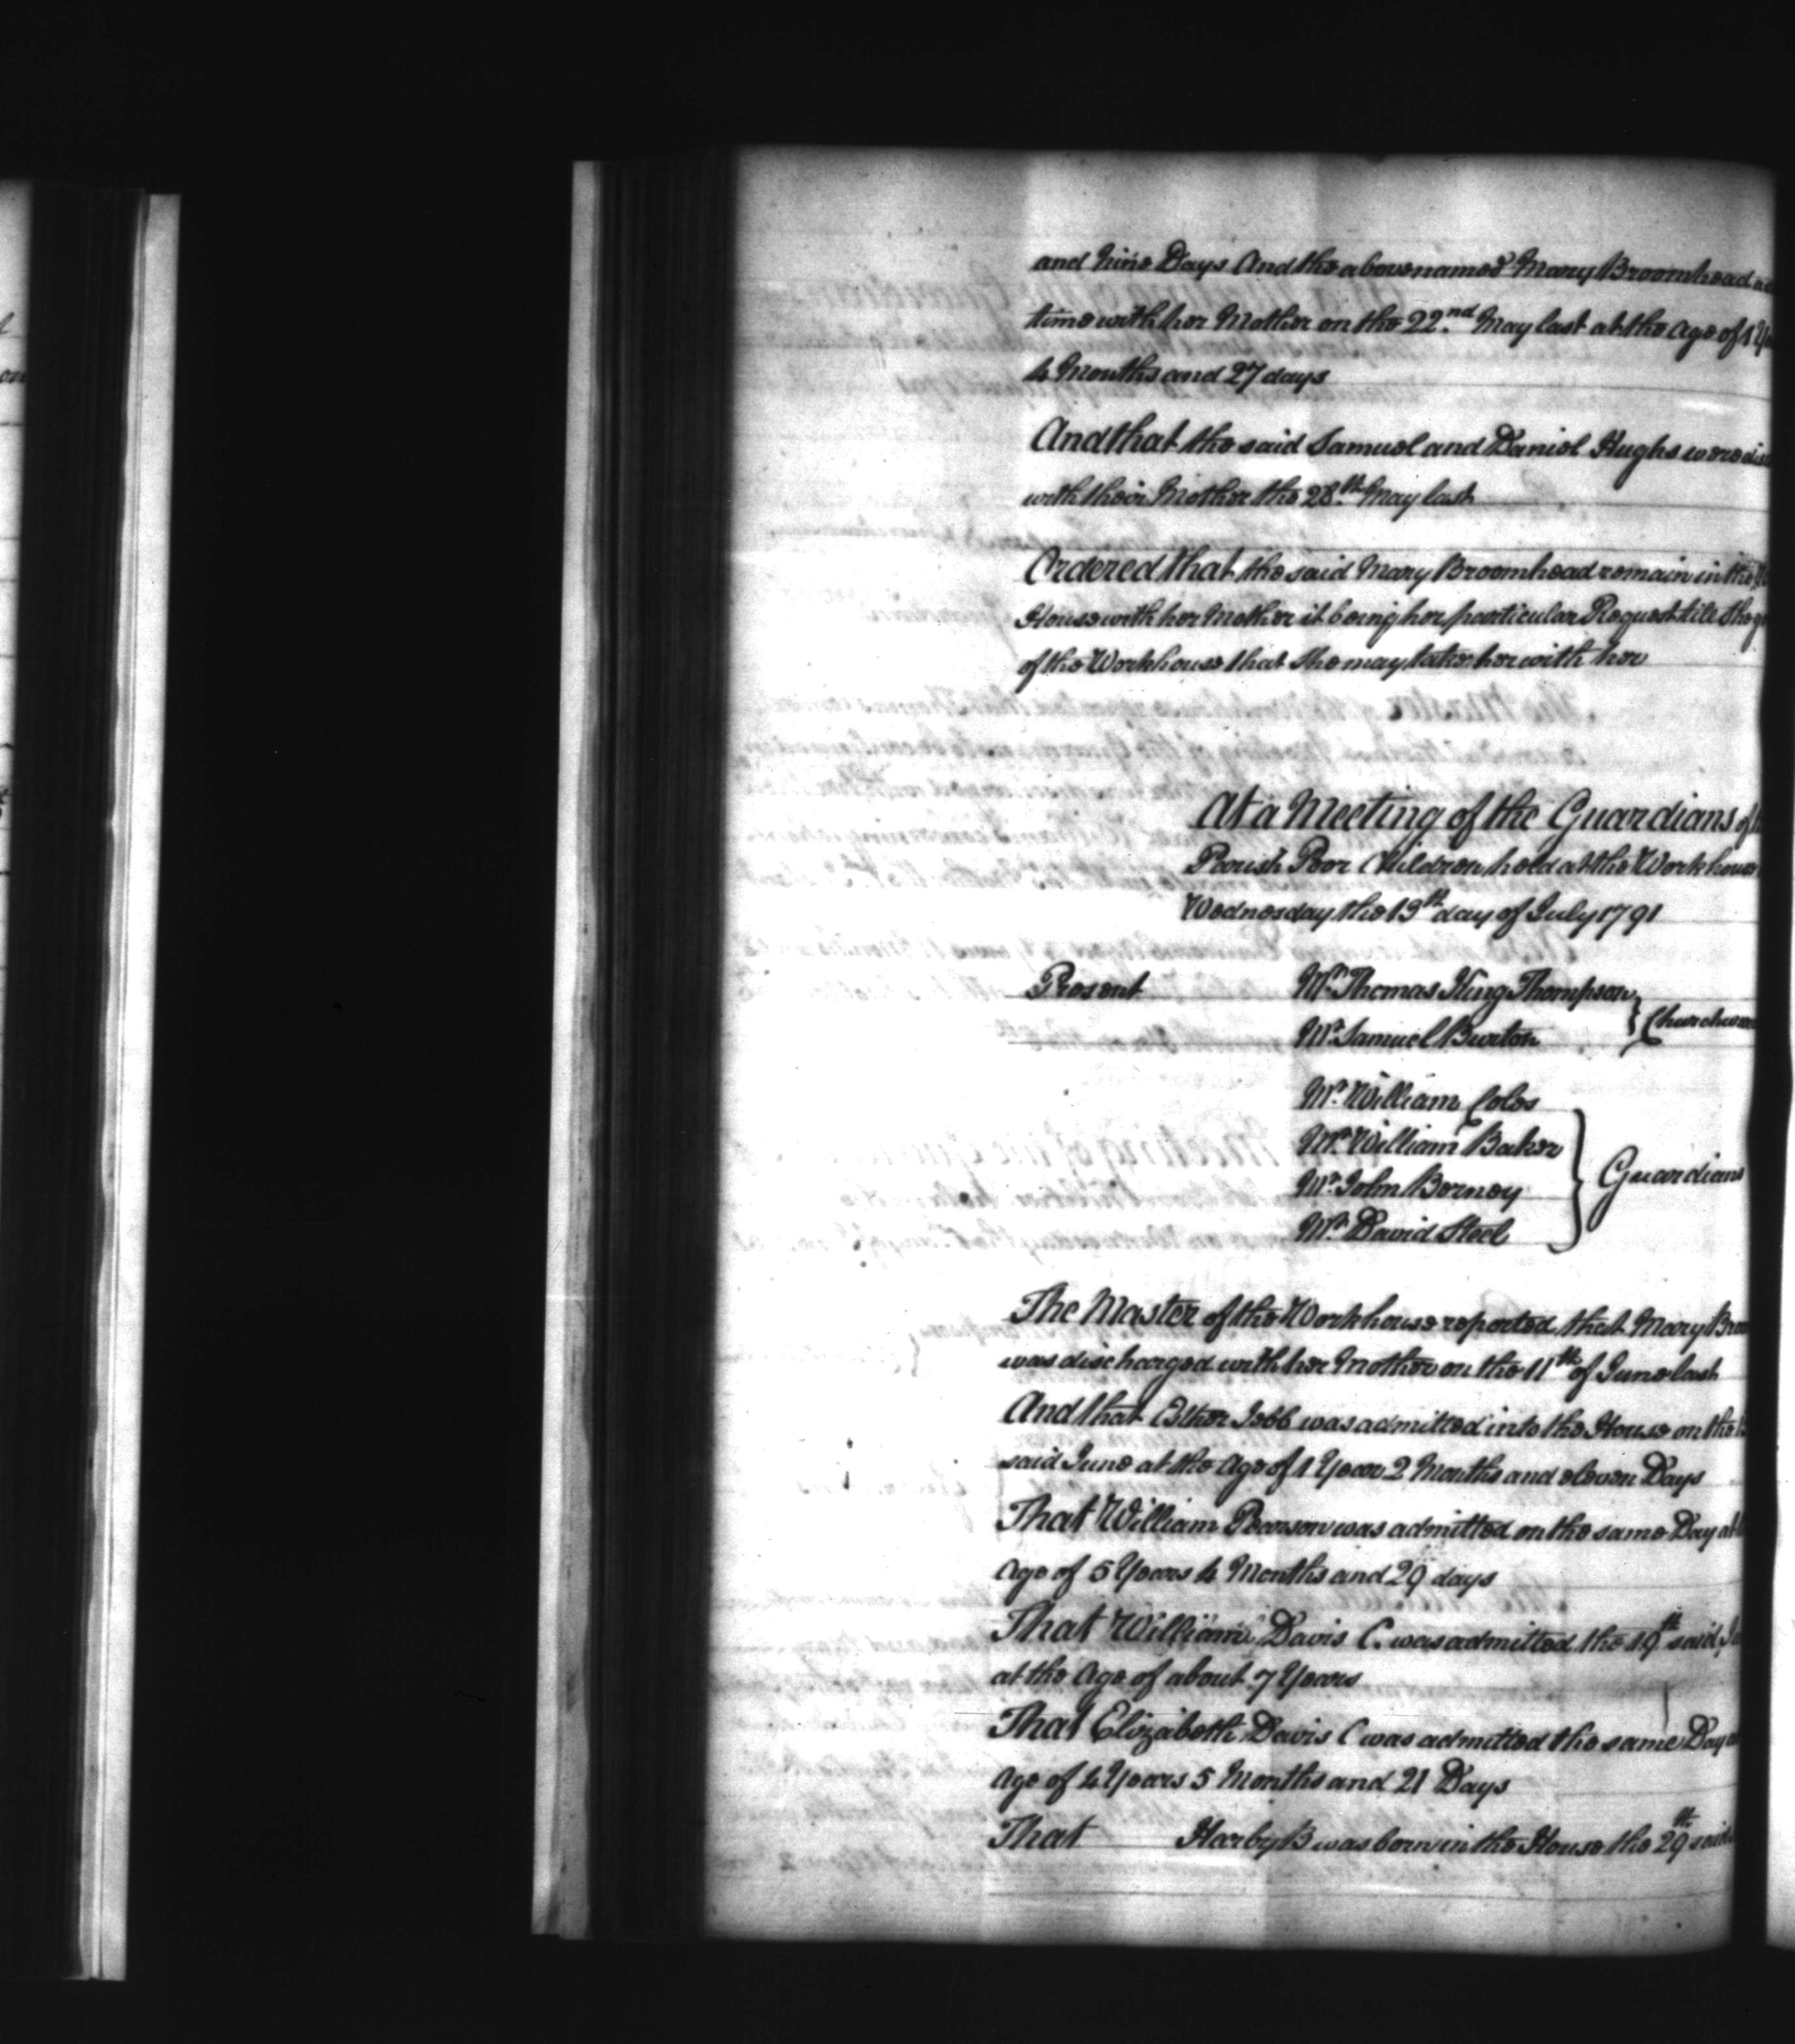 and Nine Days And the abovenamed Mary Broomhead
time with her Mother on the 22.nd May last at the Age of 1
4 Months and 27 days
And that the said Samuel and Daniel Hughs were
with their Mother the 28.th May last
Ordered that the said Mary Broomhead remain in the
House with her Mother it being her particular Request till She
of the Workhouse that She may take her with her
At a Meeting of the Guardians of
Parish Poor Children held at the Workhouse
Wednesday the 13th day of July 1791
Present Mr. Thomas King Thompson
Mr. Samuel Burton
Mr. William Coles
Mr. William Baker
Mr. John Berney
Mr. David Steel
Guardians
The Master of the Workhouse reported that Mary
was discharged with her Mother on the 11th of June last
And that Esther Jebb was admitted into the House on the
said June at the Age of 1 Year 2 Months and eleven Days
That William Pearson was admitted on the same Day at
Age of 5 Years 4 Months and 29 days
That William Davis C. was admitted the 19th said
at the Age of about 7 Years
That Elizabeth Davis C was admitted the same Day
Age of 4 Years 5 Months and 21 Days
That Harby B was born in the House the 29th said